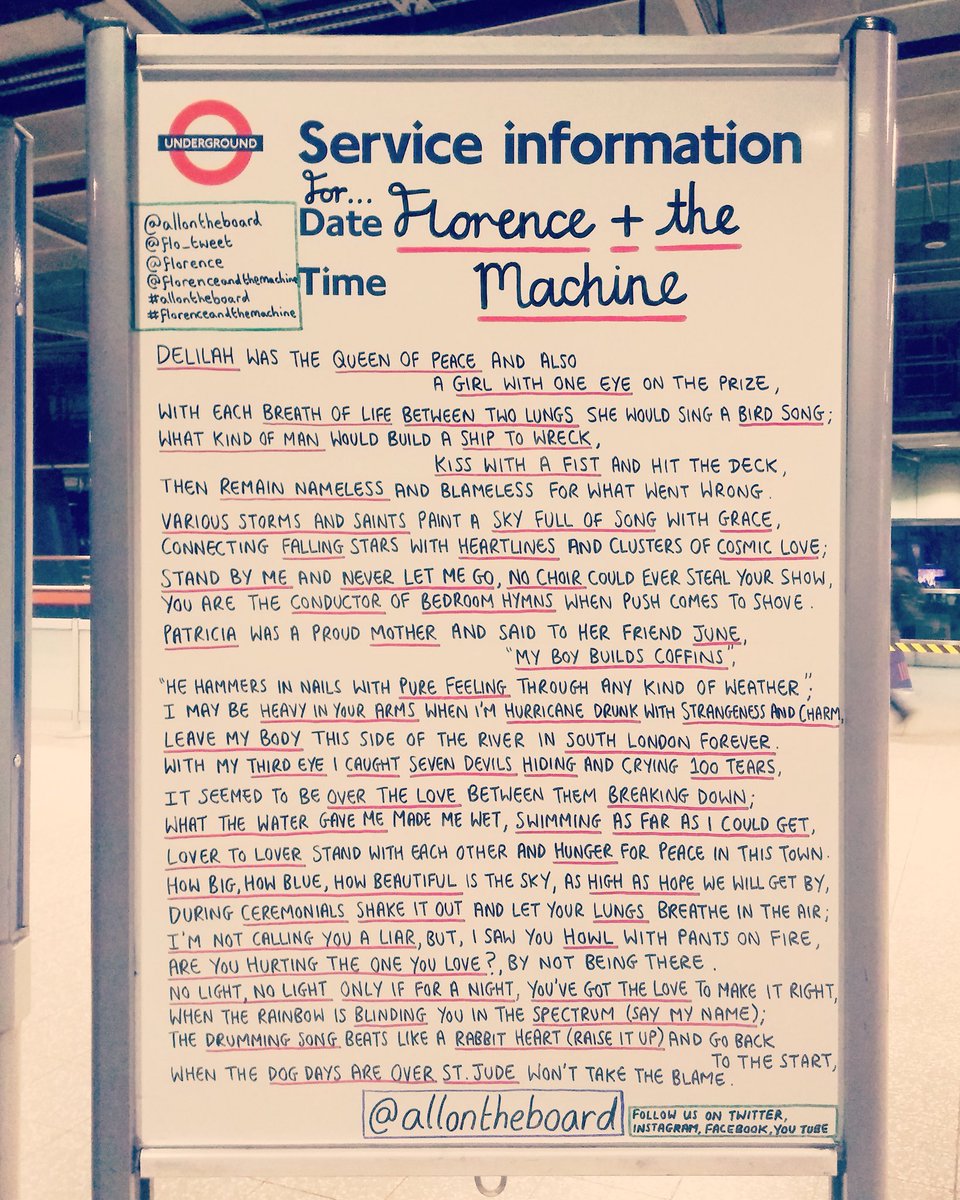 UNDERGROUND
Service information
For...
Date Florence + the
Time Machine
@allontheboard
@flo_tweet
@florence
@florenceandthemachine
#allontheboard
#florenceandthemachine
DELILAH WAS THE QUEEN OF PEACE AND ALSO
A GIRL WITH ONE EYE ON THE PRIZE,
WITH EACH BREATH OF LIFE BETWEEN TWO LUNGS SHE WOULD SING A BIRD SONG;
WHAT KIND OF MAN WOULD BUILD A SHIP TO WRECK,
KISS WITH A FIST AND HIT THE DECK,
THEN REMAIN NAMELESS AND BLAMELESS FOR WHAT WENT WRONG.
VARIOUS STORMS AND SAINTS PAINT A SKY FULL OF SONG WITH GRACE,
CONNECTING FALLING STARS WITH HEARTLINES AND CLUSTERS OF COSMIC LOVE;
STAND BY ME AND NEVER LET ME GO, NO CHOIR COULD EVER STEAL YOUR SHOW,
YOU ARE THE CONDUCTOR OF BEDROOM HYMNS WHEN PUSH COMES TO SHOVE.
PATRICIA WAS A PROUD MOTHER AND SAID TO HER FRIEND JUNE,
"MY BOY BUILDS COFFINS",
"HE HAMMERS IN NAILS WITH PURE FEELING THROUGH ANY KIND OF WEATHER";
I MAY BE HEAVY IN YOUR ARMS WHEN I'M HURRICANE DRUNK WITH STRANGENESS AND CHARM,
LEAVE MY BODY THIS SIDE OF THE RIVER IN SOUTH LONDON FOREVER.
WITH MY THIRD EYE I CAUGHT SEVEN DEVILS HIDING AND CRYING 100 TEARS,
IT SEEMED TO BE OVER THE LOVE BETWEEN THEM BREAKING DOWN;
WHAT THE WATER GAVE ME MADE ME WET, SWIMMING AS FAR AS I COULD GET,
LOVER TO LOVER STAND WITH EACH OTHER AND HUNGER FOR PEACE IN THIS TOWN.
HOW BIG, HOW BLUE, HOW BEAUTIFUL IS THE SKY, AS HIGH AS HOPE WE WILL GET BY,
DURING CEREMONIALS SHAKE IT OUT AND LET YOUR LUNGS BREATHE IN THE AIR;
I'M NOT CALLING YOU A LIAR, BUT, I SAW YOU HOWL WITH PANTS ON FIRE,
ARE YOU HURTING THE ONE YOU LOVE?, BY NOT BEING THERE.
NO LIGHT, NO LIGHT ONLY IF FOR A NIGHT, YOU'VE GOT THE LOVE TO MAKE IT RIGHT,
WHEN THE RAINBOW IS BLINDING YOU IN THE SPECTRUM (SAY MY NAME);
THE DRUMMING SONG BEATS LIKE A RABBIT HEART (RAISE IT UP) AND GO BACK
TO THE START,
WHEN THE DOG DAYS ARE OVER ST. JUDE WON'T TAKE THE BLAME.
@allontheboard
FOLLOW US ON TWITTER,
INSTAGRAM, FACEBOOK, YOU TUBE